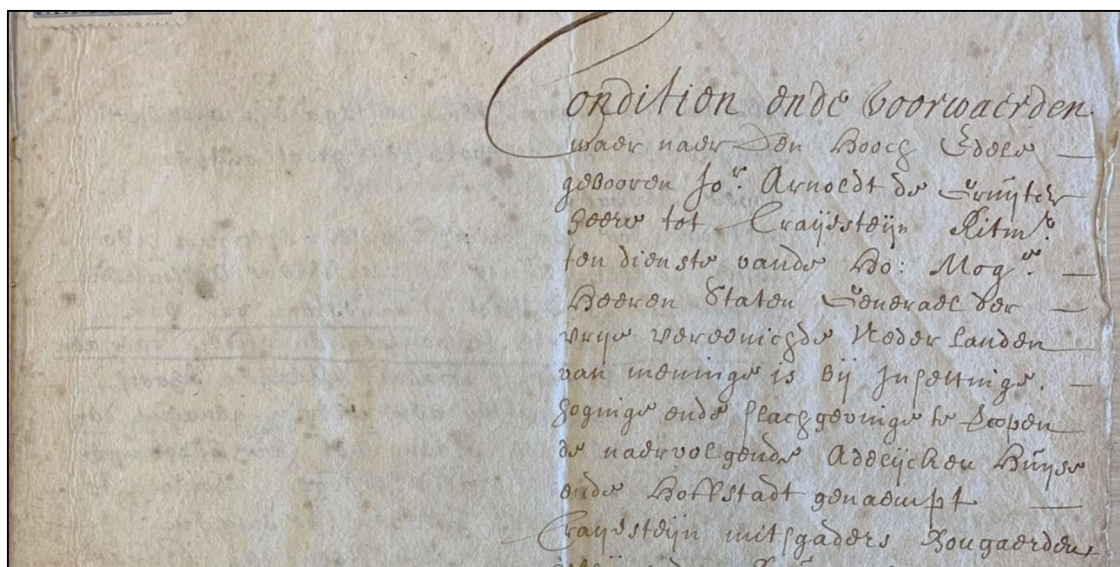 Condition ende voorwaerden
waer naer Den Hooch Edele
gebooren Jor. Arnoldt de Gruijter
heere tot Craijesteijn Ritmr.
ten dienste vande Ho: Moge.
Heeren Staten Generael der
vrije vereenichde Nederlanden
van meninge is bij Insettinge.
hoginge ende slachgevinge te
de naervolgende Adelijcken Huijse
ende Hoffstadt genaempt
Craijesteijn mitsgaders Bougaerden,